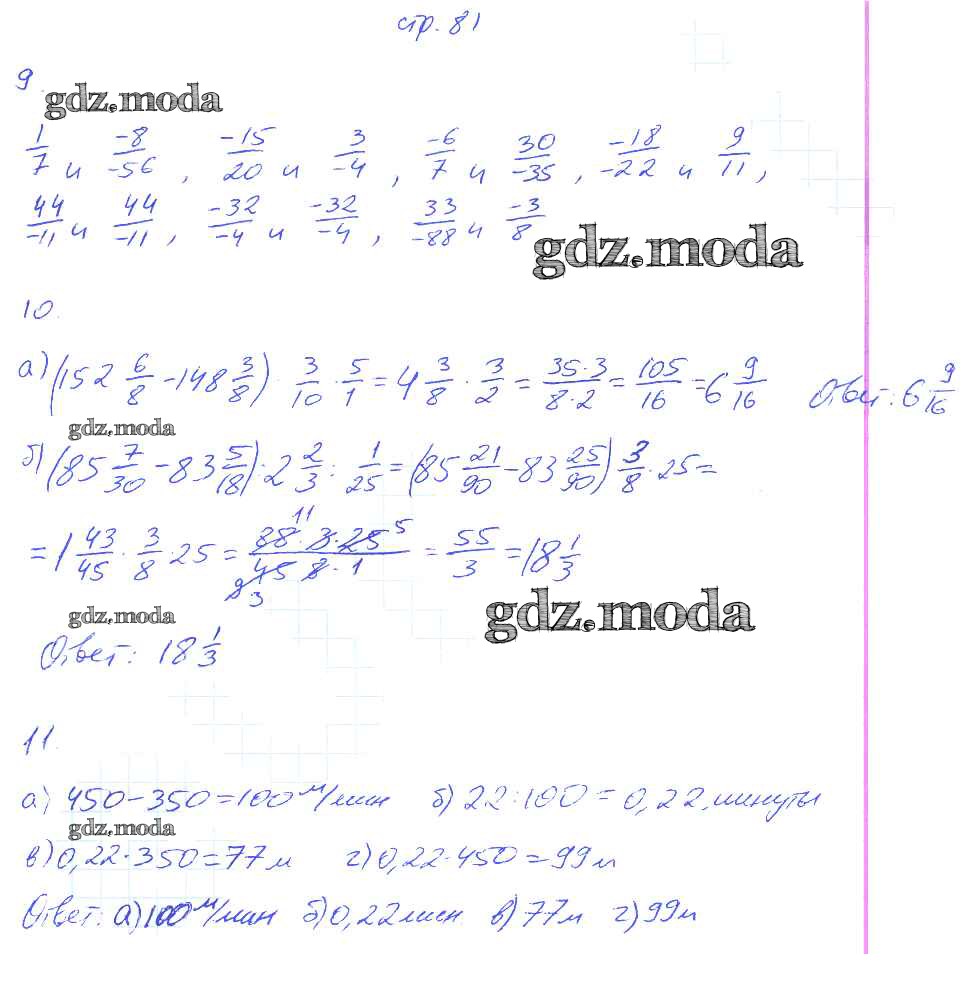 стр. 81
9
gdz.moda
1/7 и -8/-56, -15/20 и 3/-4, -6/7 и 30/-35, -18/-22 и 9/11,
44/-11 и 44/-11, -32/-4 и -32/-4, 33/-88 и -3/8
gdz.moda
10.
а) (152 6/8 - 148 3/8) · 3/10 · 5/1 = 4 3/8 · 3/2 = 35·3/8·2 = 105/16 = 6 9/16 Ответ: 6 9/16
gdz.moda
б) (85 7/30 - 83 5/18) · 2 2/3 : 1/25 = (85 21/90 - 83 25/90) 3/8 · 25 =
= 1 43/45 · 3/8 · 25 = 88·3·25/45 8·1 = 55/3 = 18 1/3
11 5
9 3
gdz.moda
gdz.moda
Ответ: 18 1/3
11.
а) 450-350=100 м/мин б) 22:100=0,22 минуты
gdz.moda
в) 0,22·350=77 м г) 0,22·450=99 м
Ответ: а) 100 м/мин б) 0,22 мин в) 77 м г) 99 м